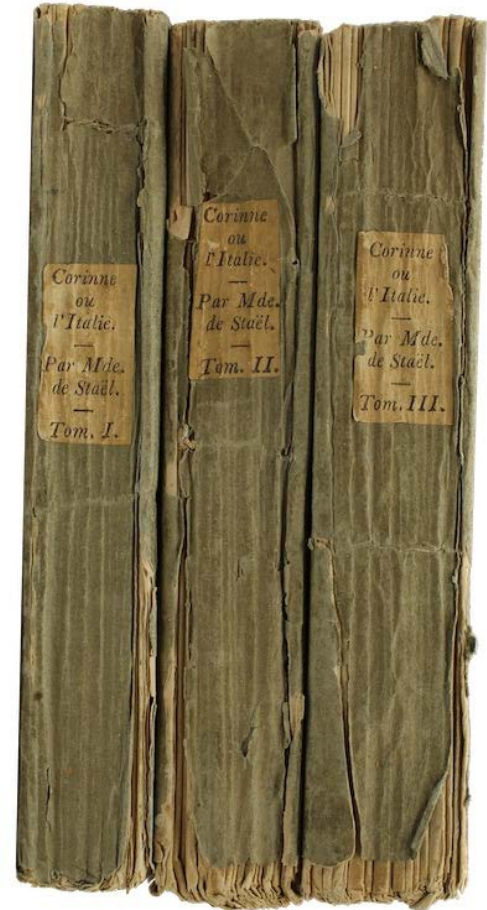 Corinne
ou
l'Italie.
Par Mde.
de Staël.
Tom. I.
Corinne
ou
l'Italie.
Par Mde.
de Staël.
Tom. II.
Corinne
ou
l'Italie.
Par Mde.
de Staël.
Tom. III.